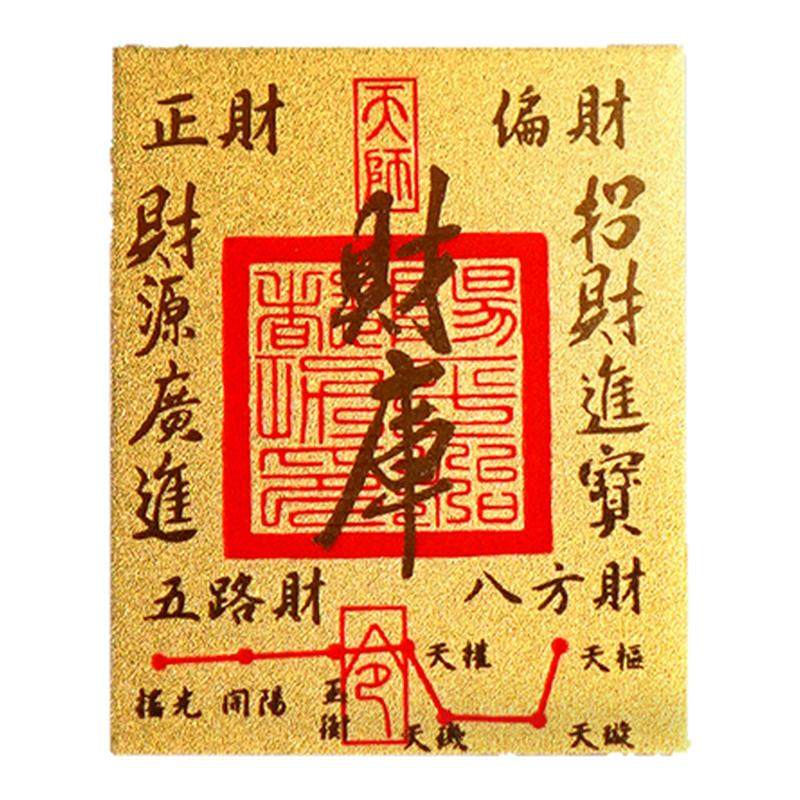 天師
偏財
正財
招財進寶
財庫
財源廣進
八方財
五路財
令
天樞
天璇
天璣
天權
玉衡
開陽
搖光